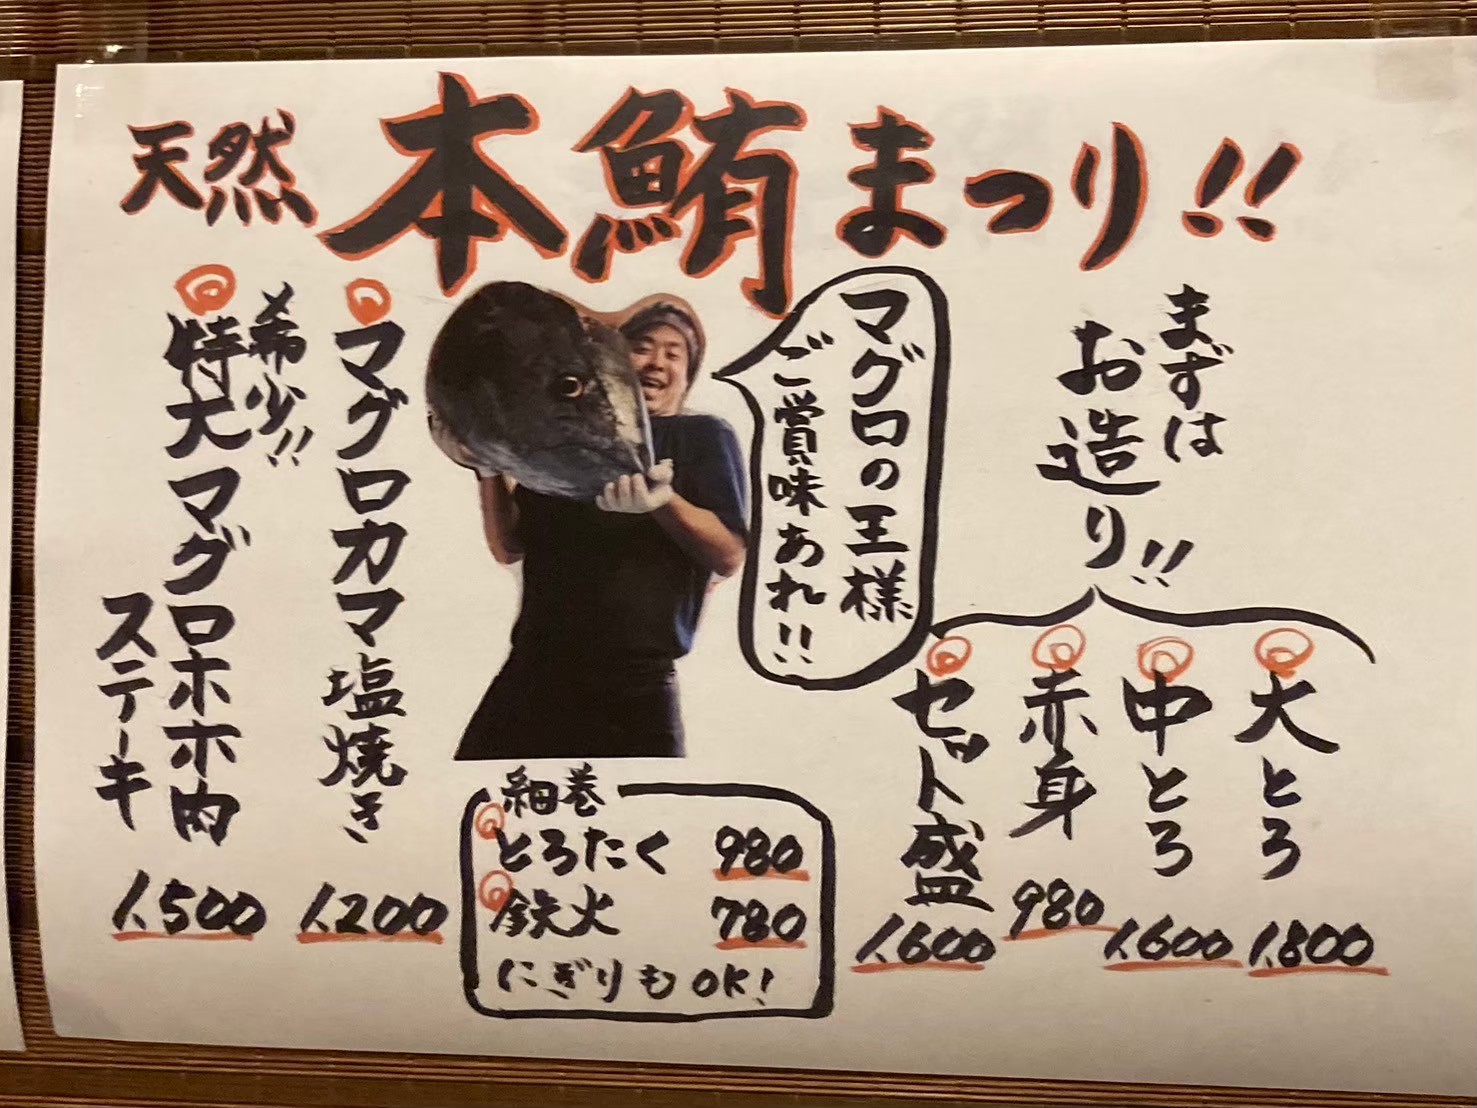 天然 本鮪まつり!!
まずは
お造り!!
大とろ
1.800
中とろ
1.600
赤身
980
セット盛
1.600
マグロの王様
ご賞味あれ!!
細巻
とろたく 980
鉄火 780
にぎりもOK!
マグロカマ塩焼き
1.200
希少!!
特大マグロホホ肉
ステーキ
1.500